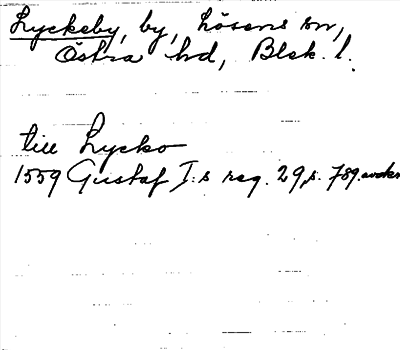 Lyckeby, by, Lösens sn,
Östra hd, Blek. l.
till Lycko
1559 Gustaf I:s reg. 29, s. 789.